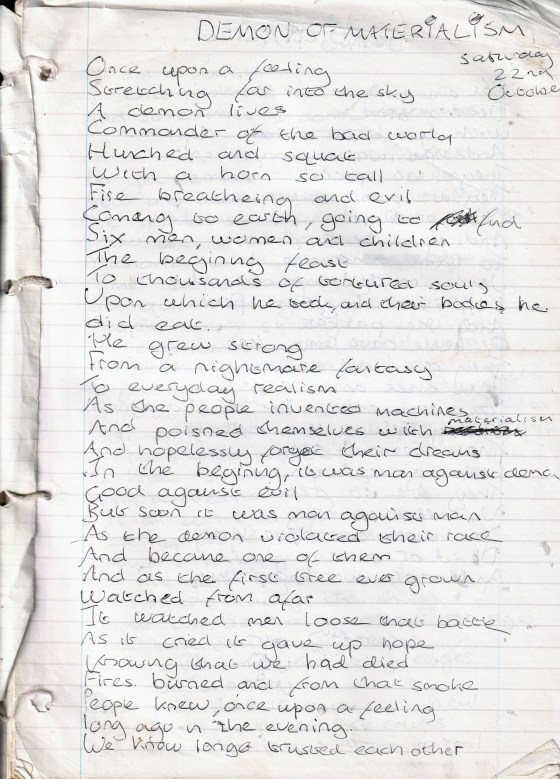 DEMON OF MATERIALISM
Saturday
22nd
October
Once upon a feeling
Stretching far into the sky
A demon lives
Commander of the bad world
Hunched and squat
With a horn so tall
Fire breatheing and evil
Coming to earth, going to find
Six men, women and children
The begining feast
To thousands of tortured souls
Upon which he took, and their bodies he
did eat.
He grew strong
From a nightmare fantasy
To everyday realism
As the people invented machines
And poisned themselves with materialism
And hopelessly forget their dreams
In the begining, it was man against demon
Good against evil
But soon it was man against man
As the demon violated their race
And became one of them
And as the first tree ever grown
Watched from afar
It watched men loose that battle
As it cried it gave up hope
Knowing that we had died
Fires burned and from that smoke
People knew, once upon a feeling
long ago in the evening.
We know longer trusted each other